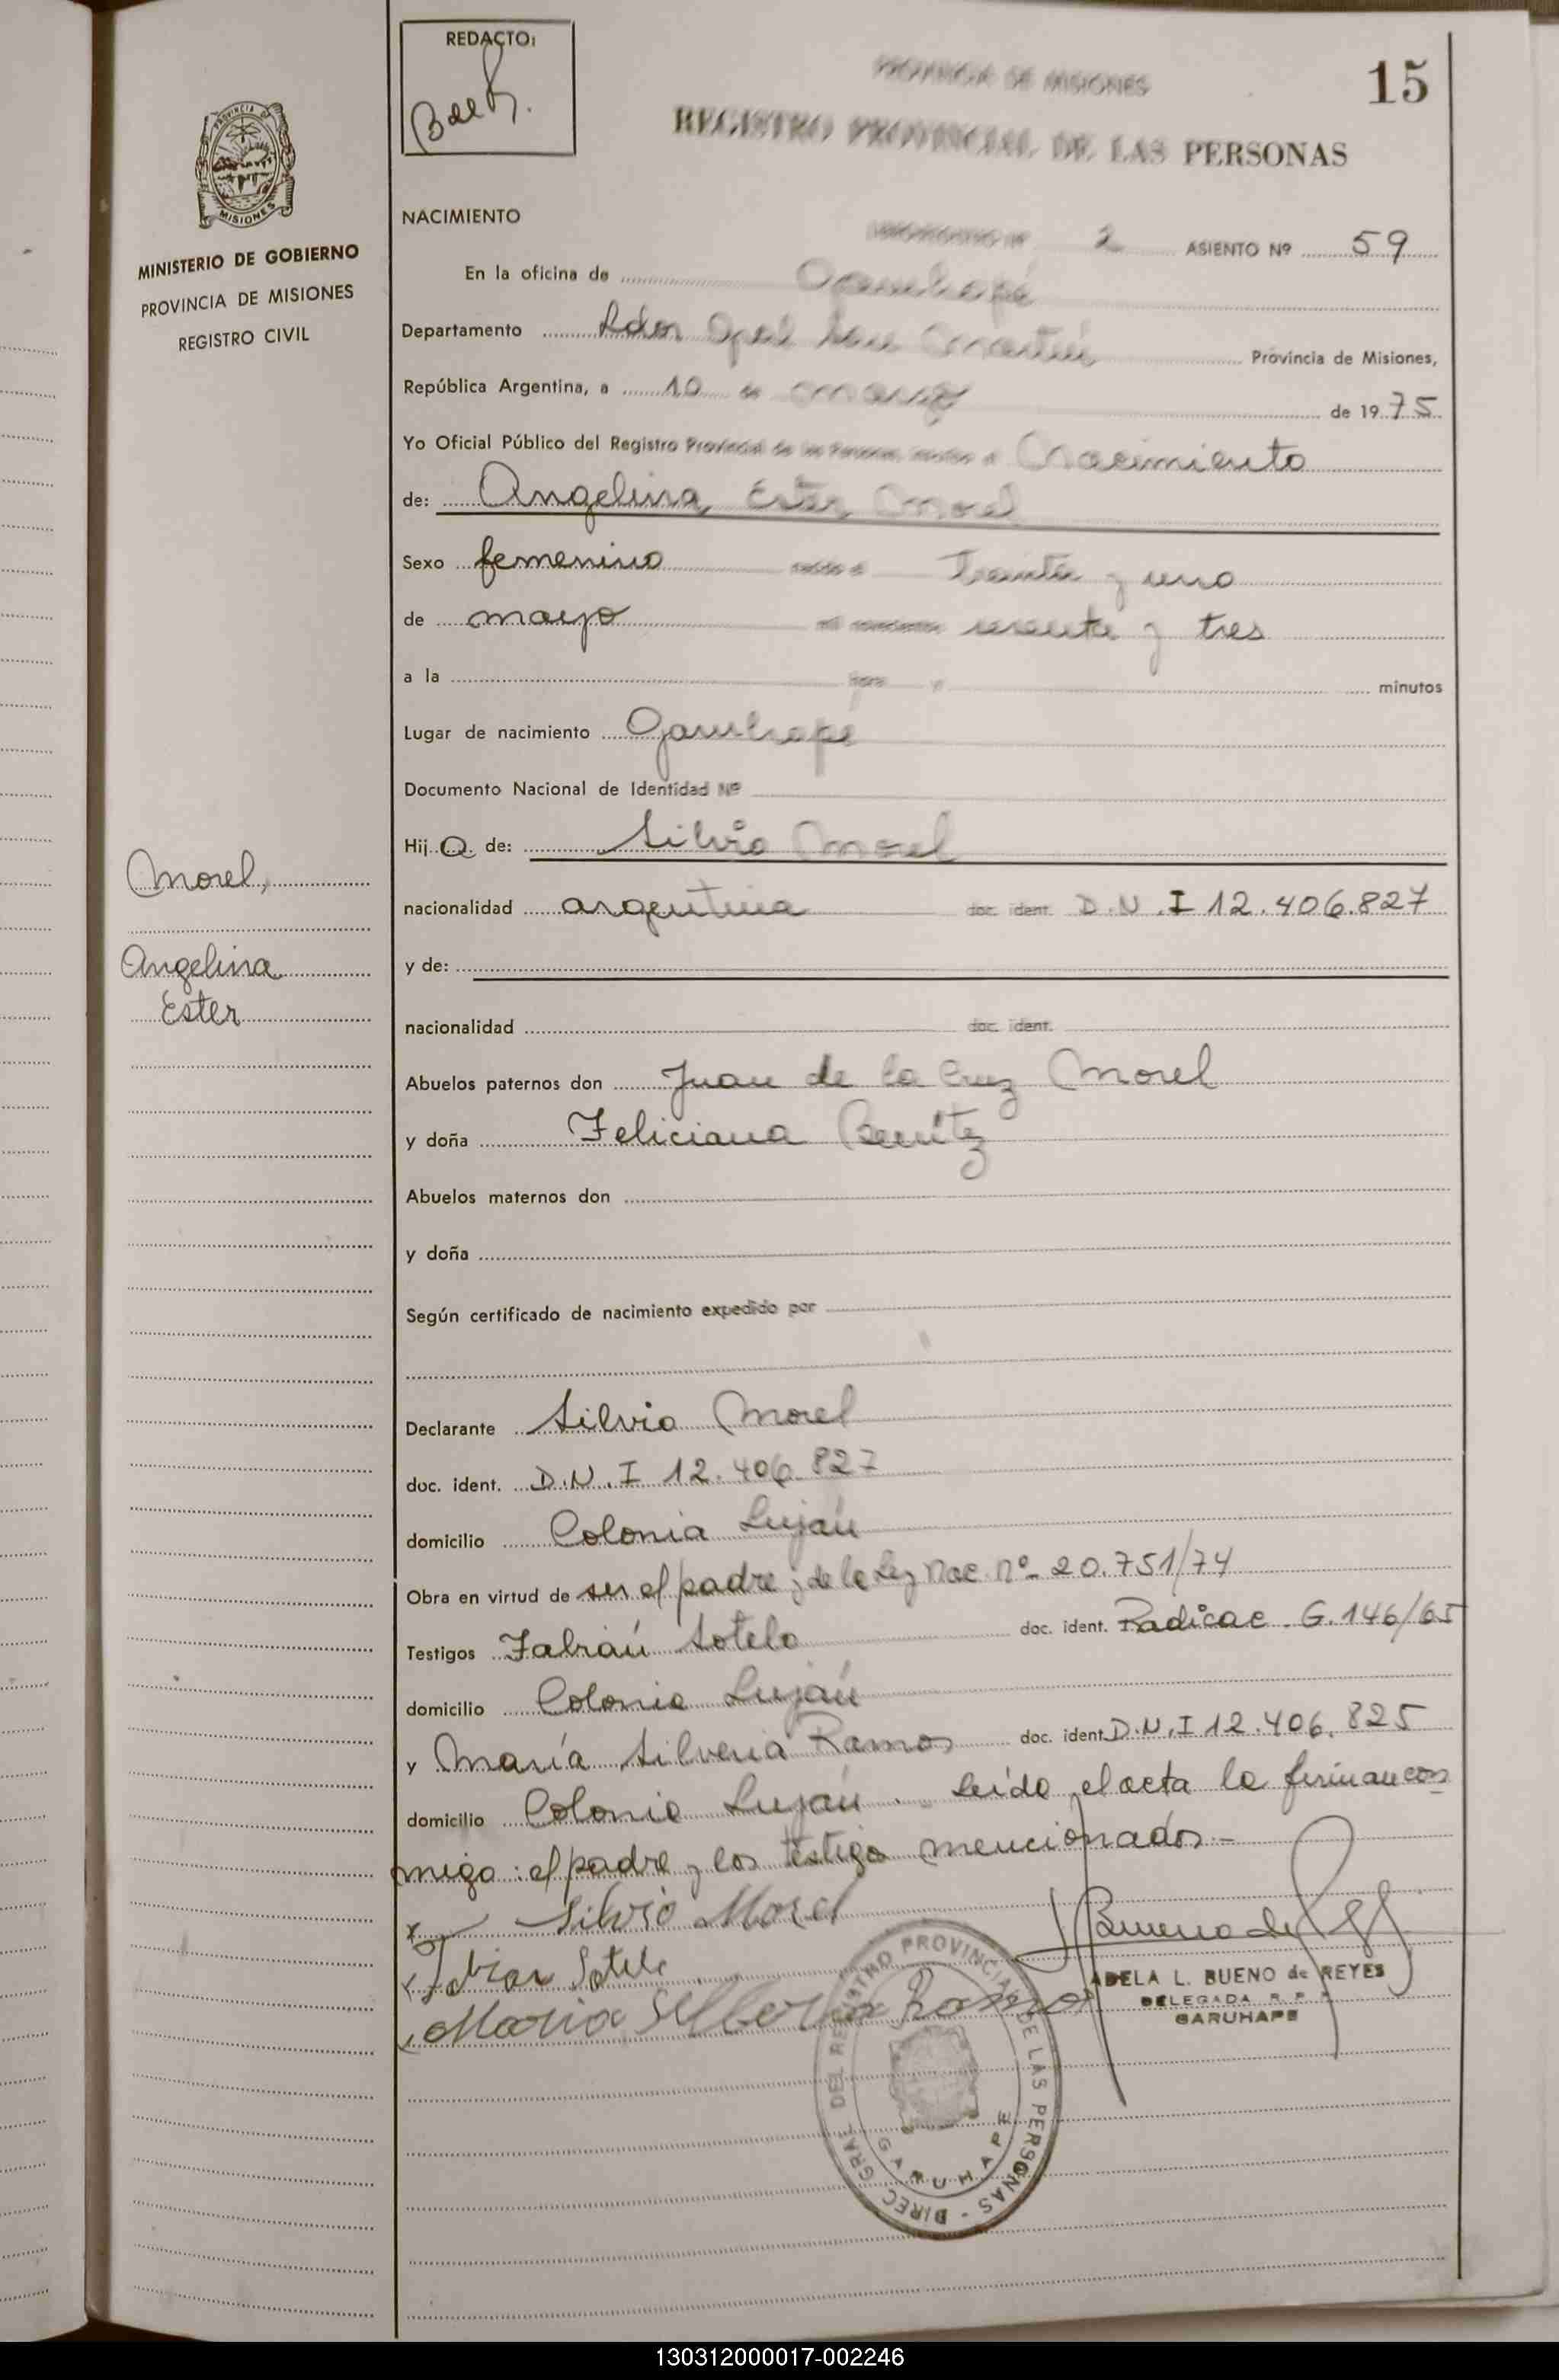 REDACTO:
PROVINCIA DE MISIONES
15
REGISTRO PROVINCIAL DE LAS PERSONAS
PROVINCIA D MISIONES
MINISTERIO DE GOBIERNO
PROVINCIA DE MISIONES
REGISTRO CIVIL
NACIMIENTO
2 ASIENTO Nº 59
En la oficina de Garuhapé
Departamento Ldor Gral San Martín Provincia de Misiones,
República Argentina, a 10 de marzo de 1975
Yo Oficial Público del Registro Provincial de las Personas, inscribo el Nacimiento
de: Angelina Ester Morel
Sexo femenino nacido el treinta y uno
de mayo mil novecientos sesenta y tres
a la hora y minutos
Lugar de nacimiento Garuhapé
Documento Nacional de Identidad Nº
Hija de: Silvio Morel
nacionalidad argentina doc. ident. D.N.I 12.406.827
y de:
nacionalidad doc. ident.
Abuelos paternos don Juan de la Cruz Morel
y doña Feliciana Benítez
Abuelos maternos don
y doña
Según certificado de nacimiento expedido por
Morel,
Angelina
Ester
Declarante Silvio Morel
doc. ident. D.N.I 12.406.827
domicilio Colonia Luján
Obra en virtud de ser el padre y de la Ley Nac. nº 20.751/74
Testigos Fabián Sotelo doc. ident. Radicac. G.146/65
domicilio Colonia Luján
y María Silveria Ramos doc. ident D.N.I 12.406.825
domicilio Colonia Luján. - Leída el acta la firman con
migo: el padre y los testigos mencionados.-
x Silvio Morel
x Fabian Sotelo
x Maria Silberia Ramos
ADELA L. BUENO de REYES
DELEGADA R. P. P.
GARUHAPE
DIREC GRAL DEL REGISTRO PROVINCIAL DE LAS PERSONAS -
GARUHAPE
130312000017-002246